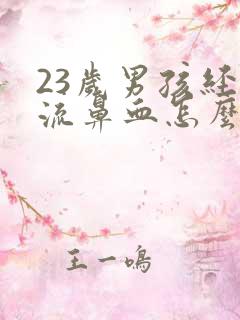 23歲男孩經
流鼻血怎麼
王一鳴